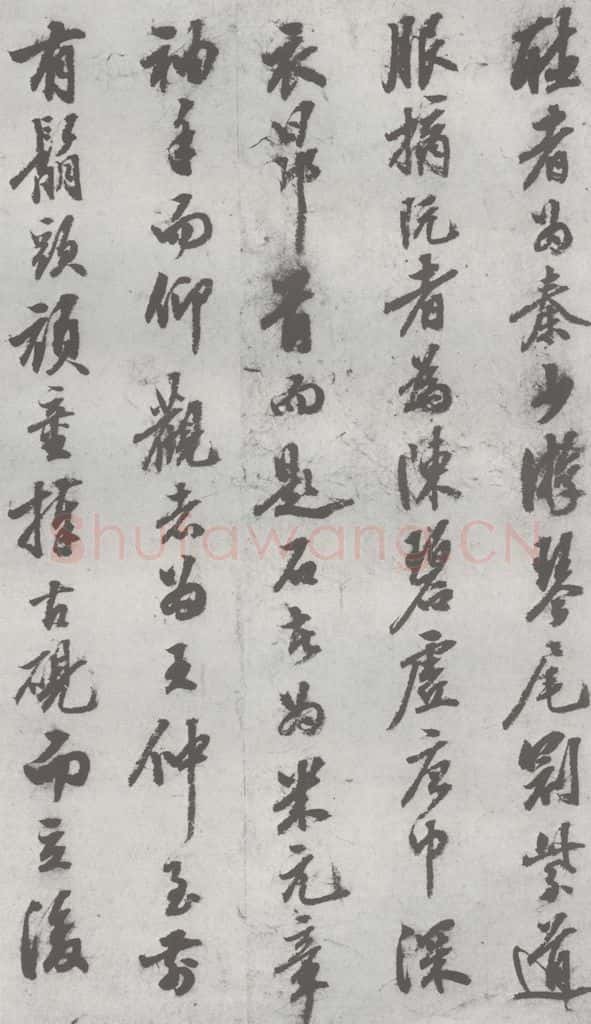 聽者为秦少游琴尾冠紫道
服摘阮者為陳碧虛唐巾深
衣昂首而題石者为米元章
袖手而仰觀者为王仲至前
有鬅頭頑童捧古硯而立後
Shufawang.CN